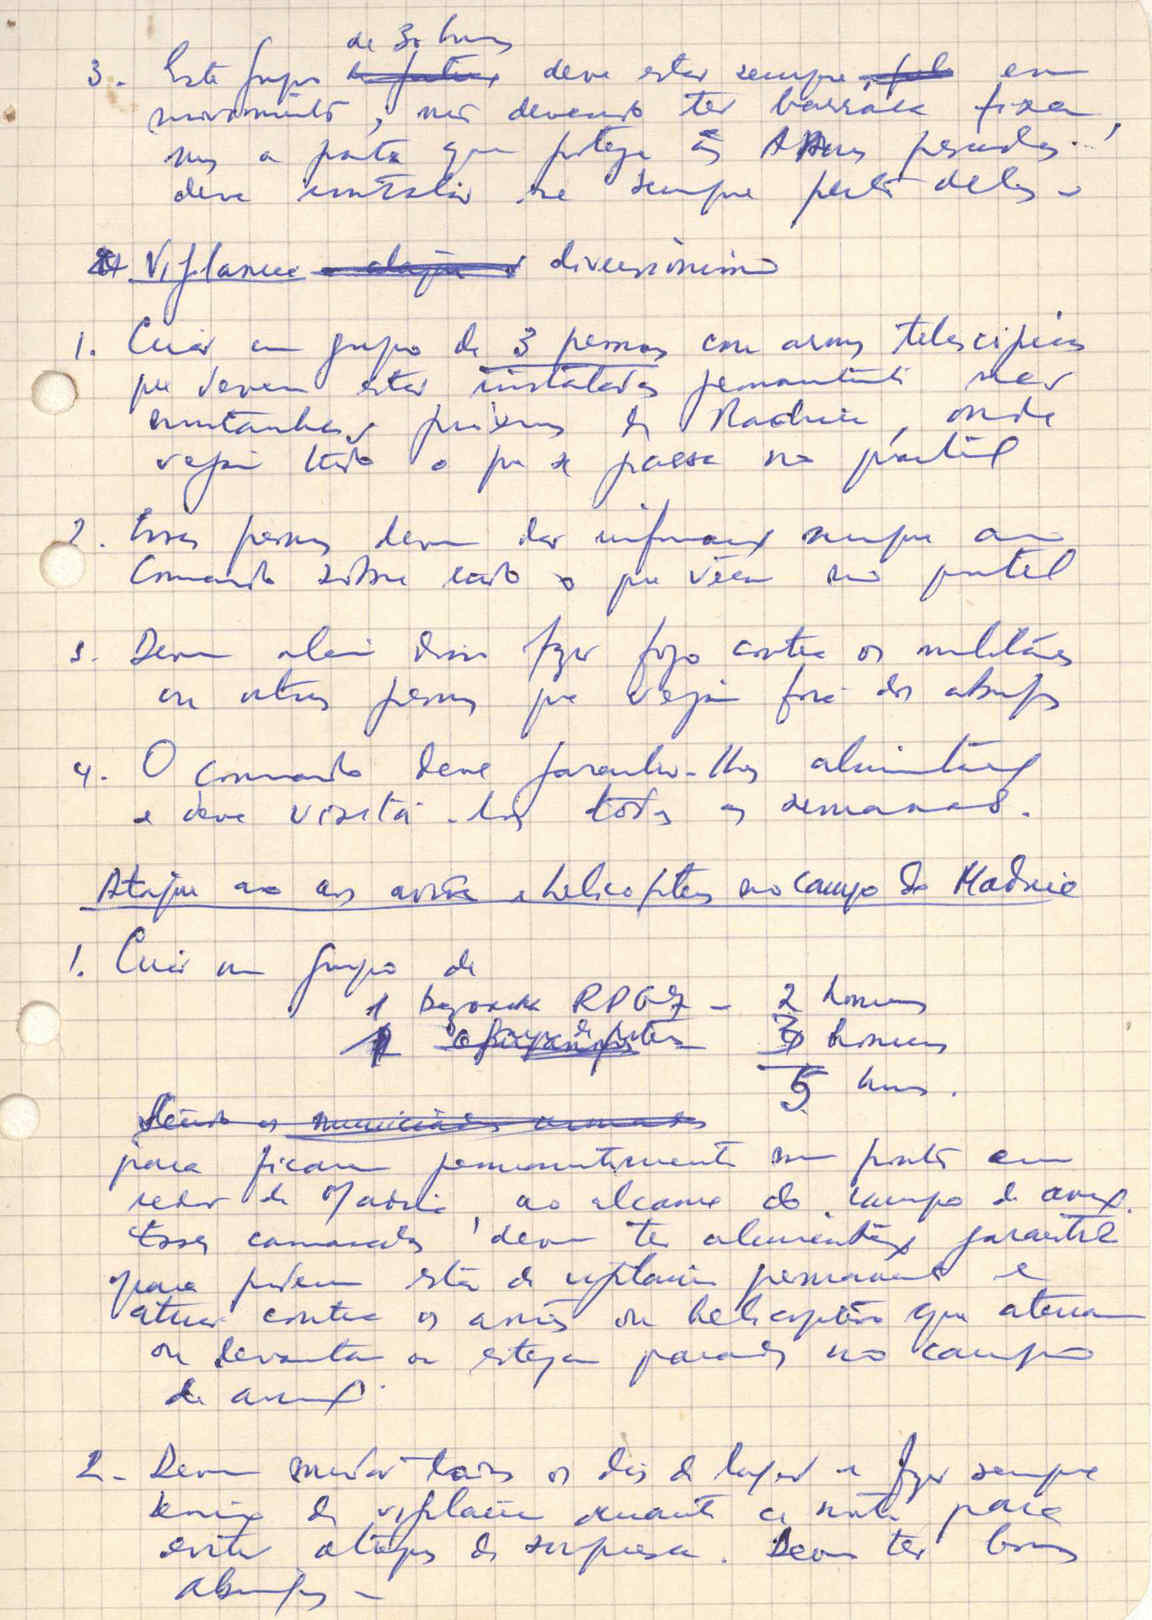 de 30 homens
3. Este grupo deve estar sempre em
movimento, não devendo ter barraca fixa,
mas a parte que protege as Armas pesadas
deve instalar-se sempre perto delas -
Vigilancia diversionismo
1. Criar um grupo de 3 pessoas com armas telescópicas
que devem estar instalados permanente nas
montanhas próximas de Madina, onde
vejam tudo o que se passa no quartel
2. Essas pessoas devem dar informações sempre ao
Comando sobre tudo o que vêem no quartel
3. Devem além disso fazer fogo contra os militares
ou outras pessoas que vejam fora dos abrigos
4. O comando deve garantir-lhes alimentação
e deve visitá-los todas as semanas.
Ataque aos aviões e helicopteros no campo de Madina
1. Criar um grupo de
1 bazooka RPG-7 - 2 homens
3 homens
5 homens.
para ficarem permanentemente num ponto em
redor de Madina, ao alcance do campo de aviação.
Esses camaradas devem ter alimentação garantida
para poderem estar de vigilancia permanente e
atirar contra os aviões ou helicopteros que aterram
ou levantam ou estejam parados no campo
de aviação.
2. Devem mudar todos os dias de lugar e fazer sempre
serviço de vigilancia durante a noite para
evitar ataques de surpresa. Devem ter bons
abrigos -